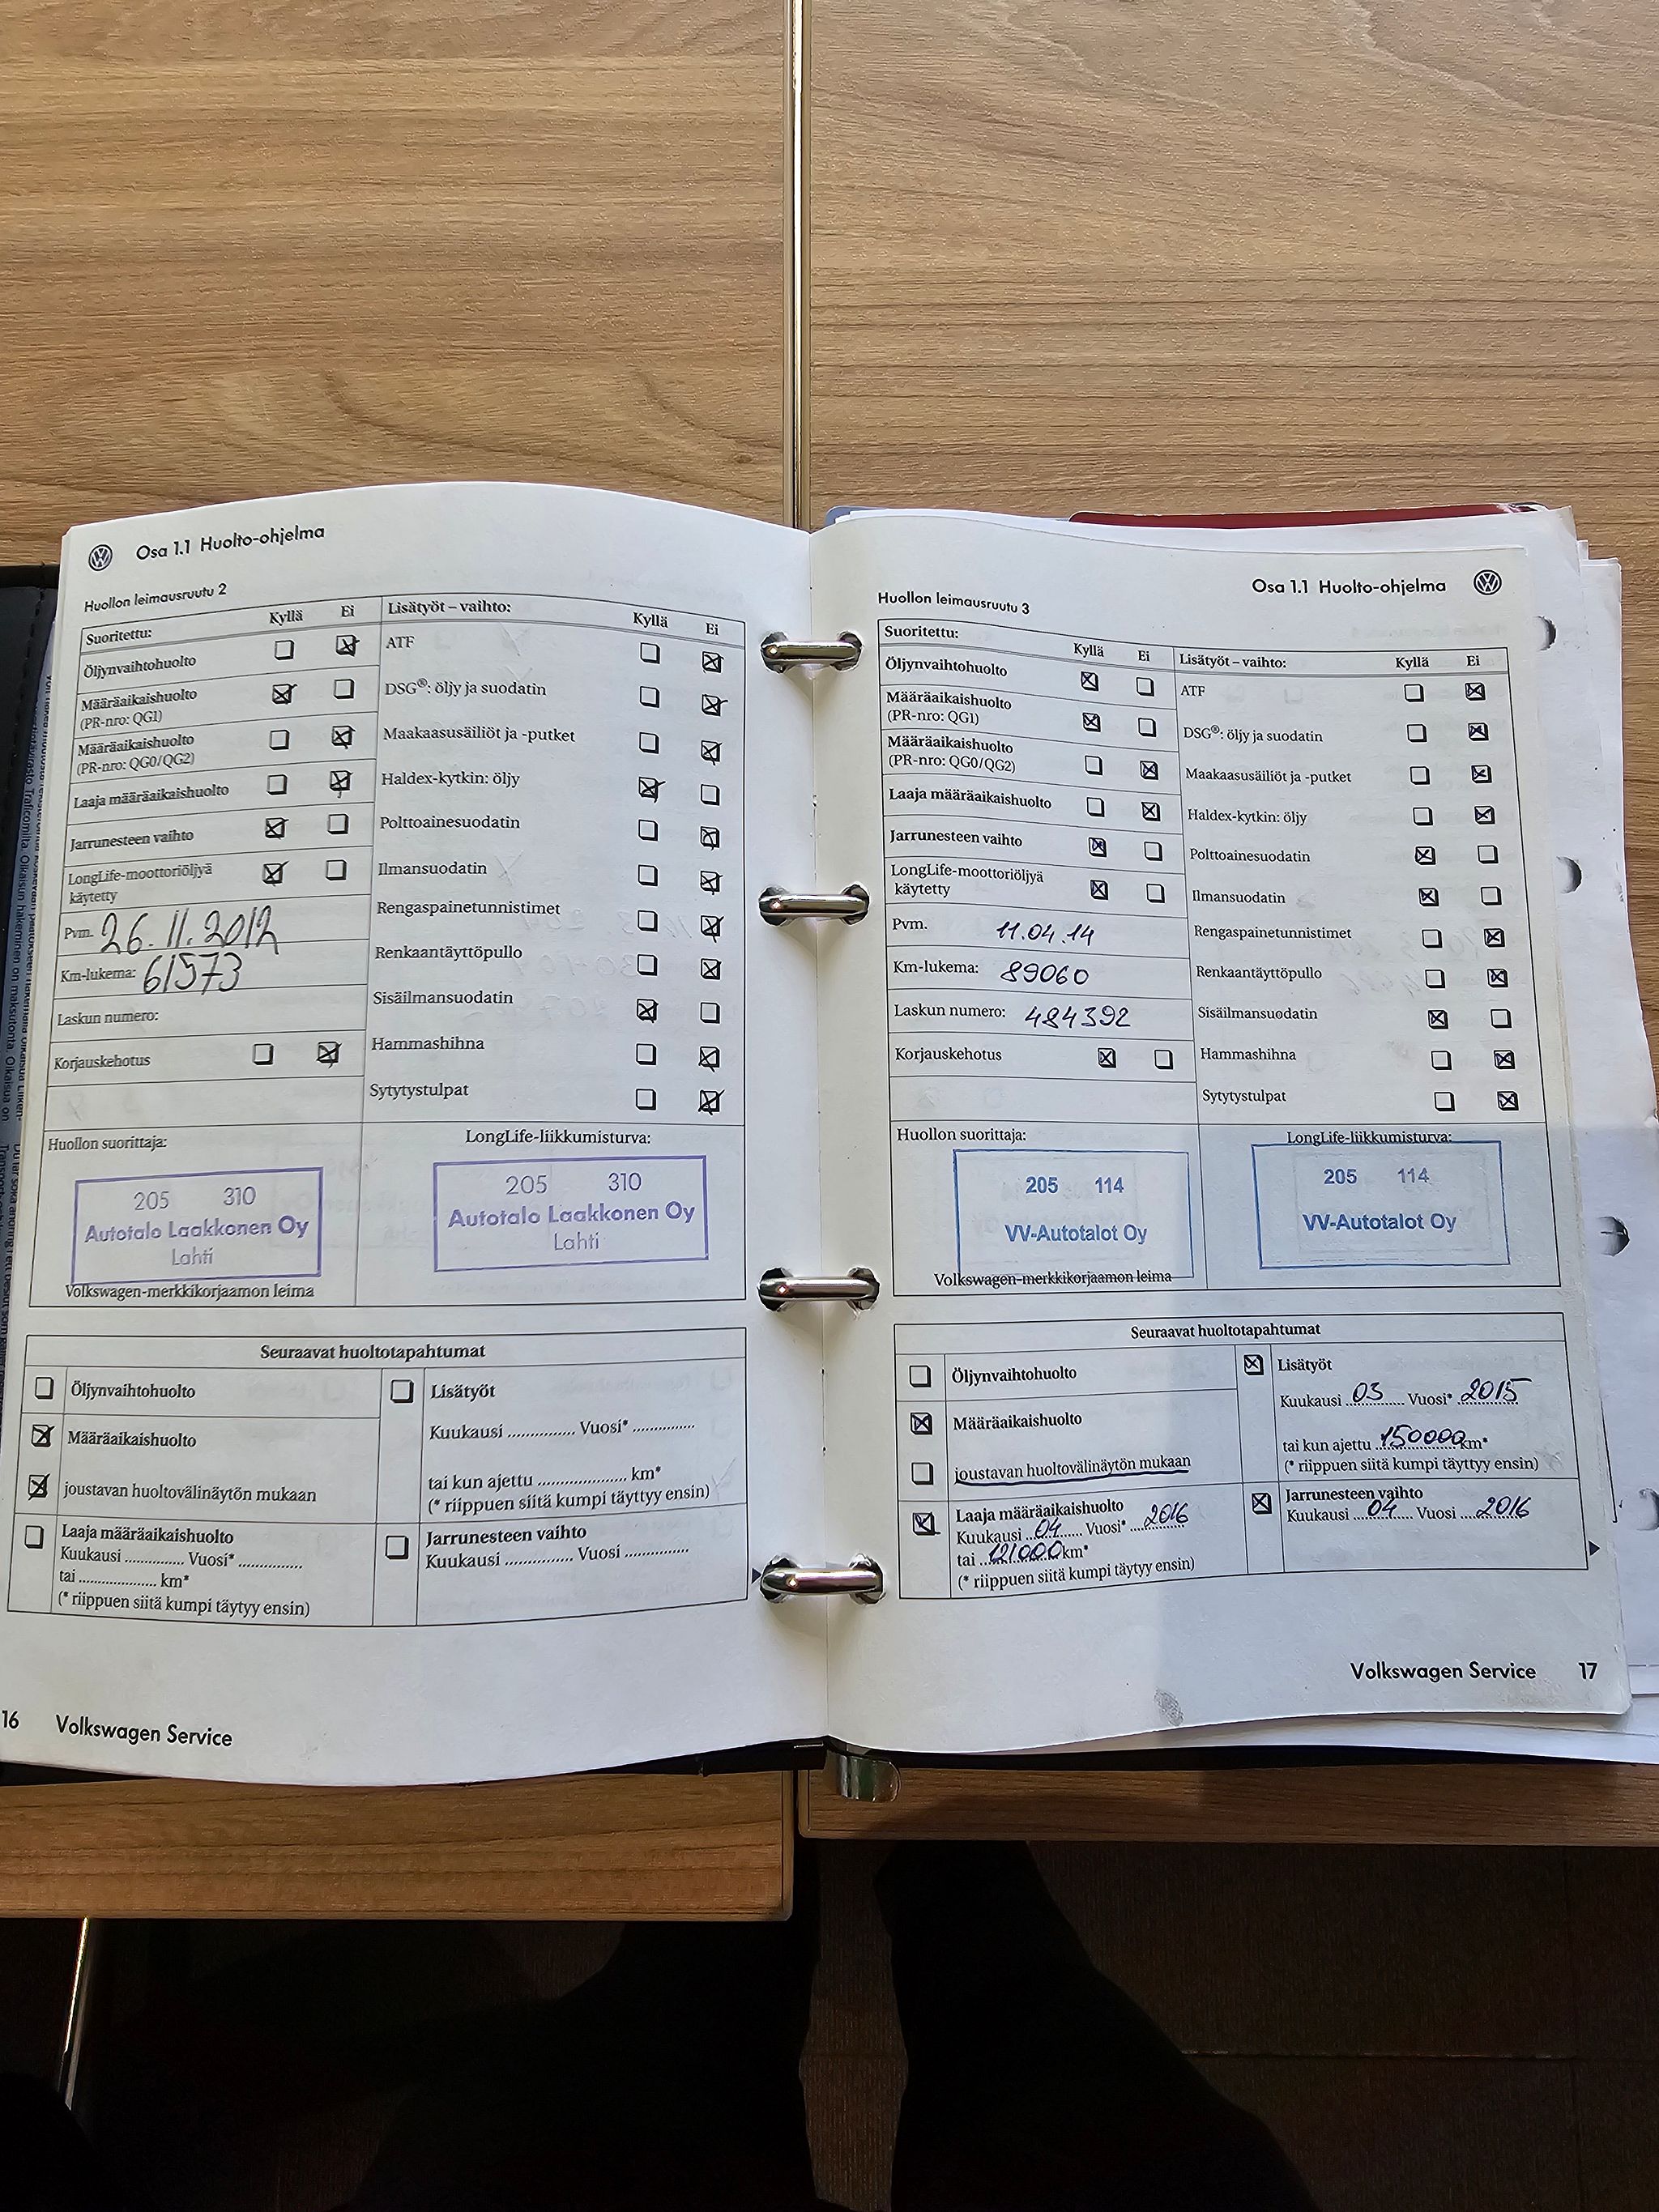 Osa 1.1 Huolto-ohjelma
Huollon leimausruutu 2
Suoritettu:
Kyllä Ei
Öljynvaihtohuolto
Määräaikaishuolto
(PR-nro: QG1)
Määräaikaishuolto
(PR-nro: QG0/QG2)
Laaja määräaikaishuolto
Jarrunesteen vaihto
LongLife-moottoriöljyä
käytetty
Pvm. 26.11.2012
Km-lukema: 61573
Laskun numero:
Korjauskehotus
Lisätyöt – vaihto:
Kyllä Ei
ATF
DSG®: öljy ja suodatin
Maakaasusäiliöt ja -putket
Haldex-kytkin: öljy
Polttoainesuodatin
Ilmansuodatin
Rengaspainetunnistimet
Renkaantäyttöpullo
Sisäilmansuodatin
Hammashihna
Sytytystulpat
Huollon suorittaja:
205 310
Autotalo Laakkonen Oy
Lahti
Volkswagen-merkkikorjaamon leima
LongLife-liikkumisturva:
205 310
Autotalo Laakkonen Oy
Lahti
Seuraavat huoltotapahtumat
Öljynvaihtohuolto
Määräaikaishuolto
joustavan huoltovälinäytön mukaan
Laaja määräaikaishuolto
Kuukausi ............... Vuosi* ...............
tai .................... km*
(* riippuen siitä kumpi täytyy ensin)
Lisätyöt
Kuukausi ................ Vuosi* ...............
tai kun ajettu ...................... km*
(* riippuen siitä kumpi täyttyy ensin)
Jarrunesteen vaihto
Kuukausi ................ Vuosi ................
16 Volkswagen Service
Osa 1.1 Huolto-ohjelma
Huollon leimausruutu 3
Suoritettu:
Kyllä Ei
Öljynvaihtohuolto
Määräaikaishuolto
(PR-nro: QG1)
Määräaikaishuolto
(PR-nro: QG0/QG2)
Laaja määräaikaishuolto
Jarrunesteen vaihto
LongLife-moottoriöljyä
käytetty
Pvm. 11.04.14
Km-lukema: 89060
Laskun numero: 484392
Korjauskehotus
Lisätyöt – vaihto:
Kyllä Ei
ATF
DSG®: öljy ja suodatin
Maakaasusäiliöt ja -putket
Haldex-kytkin: öljy
Polttoainesuodatin
Ilmansuodatin
Rengaspainetunnistimet
Renkaantäyttöpullo
Sisäilmansuodatin
Hammashihna
Sytytystulpat
Huollon suorittaja:
205 114
VV-Autotalot Oy
Volkswagen-merkkikorjaamon leima
LongLife-liikkumisturva:
205 114
VV-Autotalot Oy
Seuraavat huoltotapahtumat
Öljynvaihtohuolto
Määräaikaishuolto
joustavan huoltovälinäytön mukaan
Laaja määräaikaishuolto
Kuukausi 04 Vuosi* 2016
tai 121000 km*
(* riippuen siitä kumpi täytyy ensin)
Lisätyöt
Kuukausi 03 Vuosi* 2015
tai kun ajettu 150000 km*
(* riippuen siitä kumpi täyttyy ensin)
Jarrunesteen vaihto
Kuukausi 04 Vuosi 2016
Volkswagen Service 17